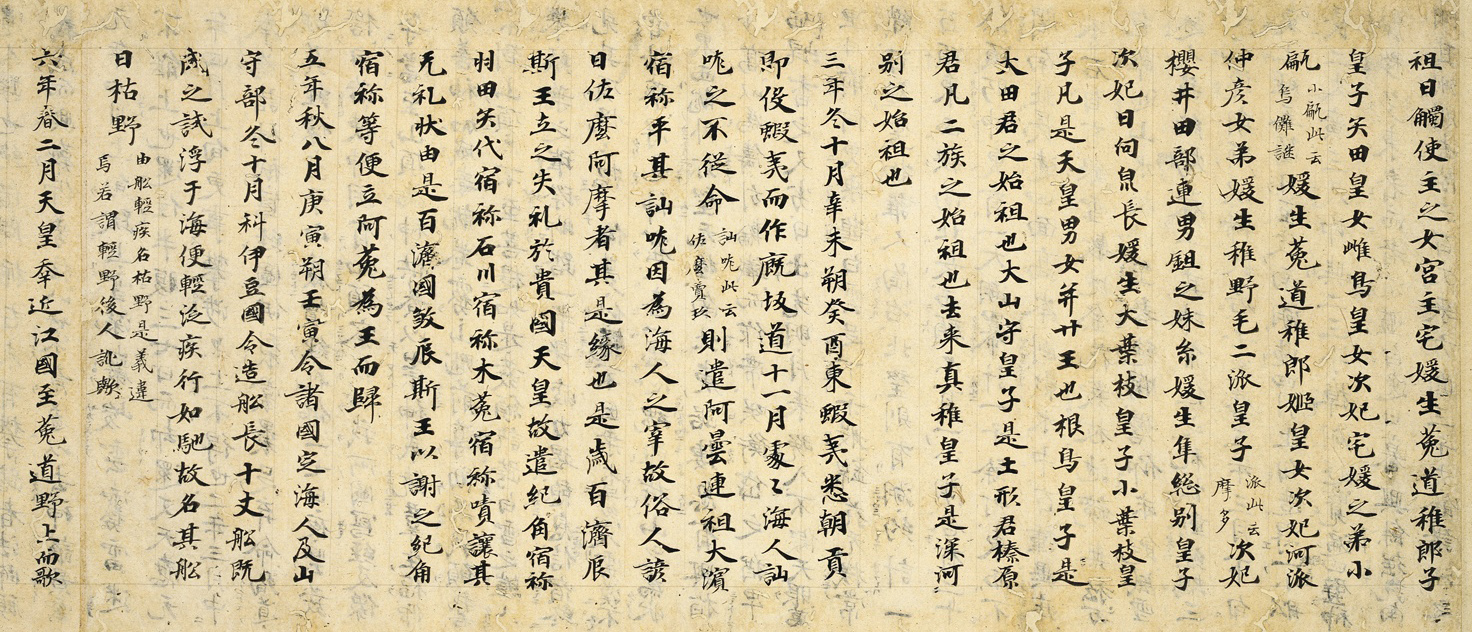 祖日觸使主之女宮主宅媛生菟道稚郎子
皇子矢田皇女雌鳥皇女次妃宅媛之弟小
甂小甂此云烏儺謎媛生菟道稚郎姫皇女次妃河派
仲彦女弟媛生稚野毛二派皇子派此云摩多次妃
櫻井田部連男鉏之妹糸媛生隼総別皇子
次妃日向泉長媛生大葉枝皇子小葉枝皇
子凡是天皇男女并廿王也根鳥皇子是
大田君之始祖也大山守皇子是土形君榛原
君凡二族之始祖也去来真稚皇子是深河
別之始祖也
三年冬十月辛未朔癸酉東蝦夷悉朝貢
即役蝦夷而作厩坂道十一月處〻海人訕
哤之不從命訕哤此云佐麼賣玖則遣阿曇連祖大濱
宿祢平其訕哤因為海人之宰故俗人諺
曰佐麼阿摩者其是緣也是歳百濟辰
斯王立之失礼於貴國天皇故遣紀角宿祢
羽田矢代宿祢石川宿祢木菟宿祢嘖讓其
无礼狀由是百濟國敦辰斯王以謝之紀角
宿祢等便立阿菟為王而歸
五年秋八月庚寅朔壬寅令諸國定海人及山
守部冬十月科伊豆國令造舩長十丈舩既
成之試浮于海便輕泛疾行如馳故名其舩
曰枯野由舩輕疾名枯野是義違焉若謂輕野後人訛歟
六年春二月天皇奉近江國至菟道野上而歌